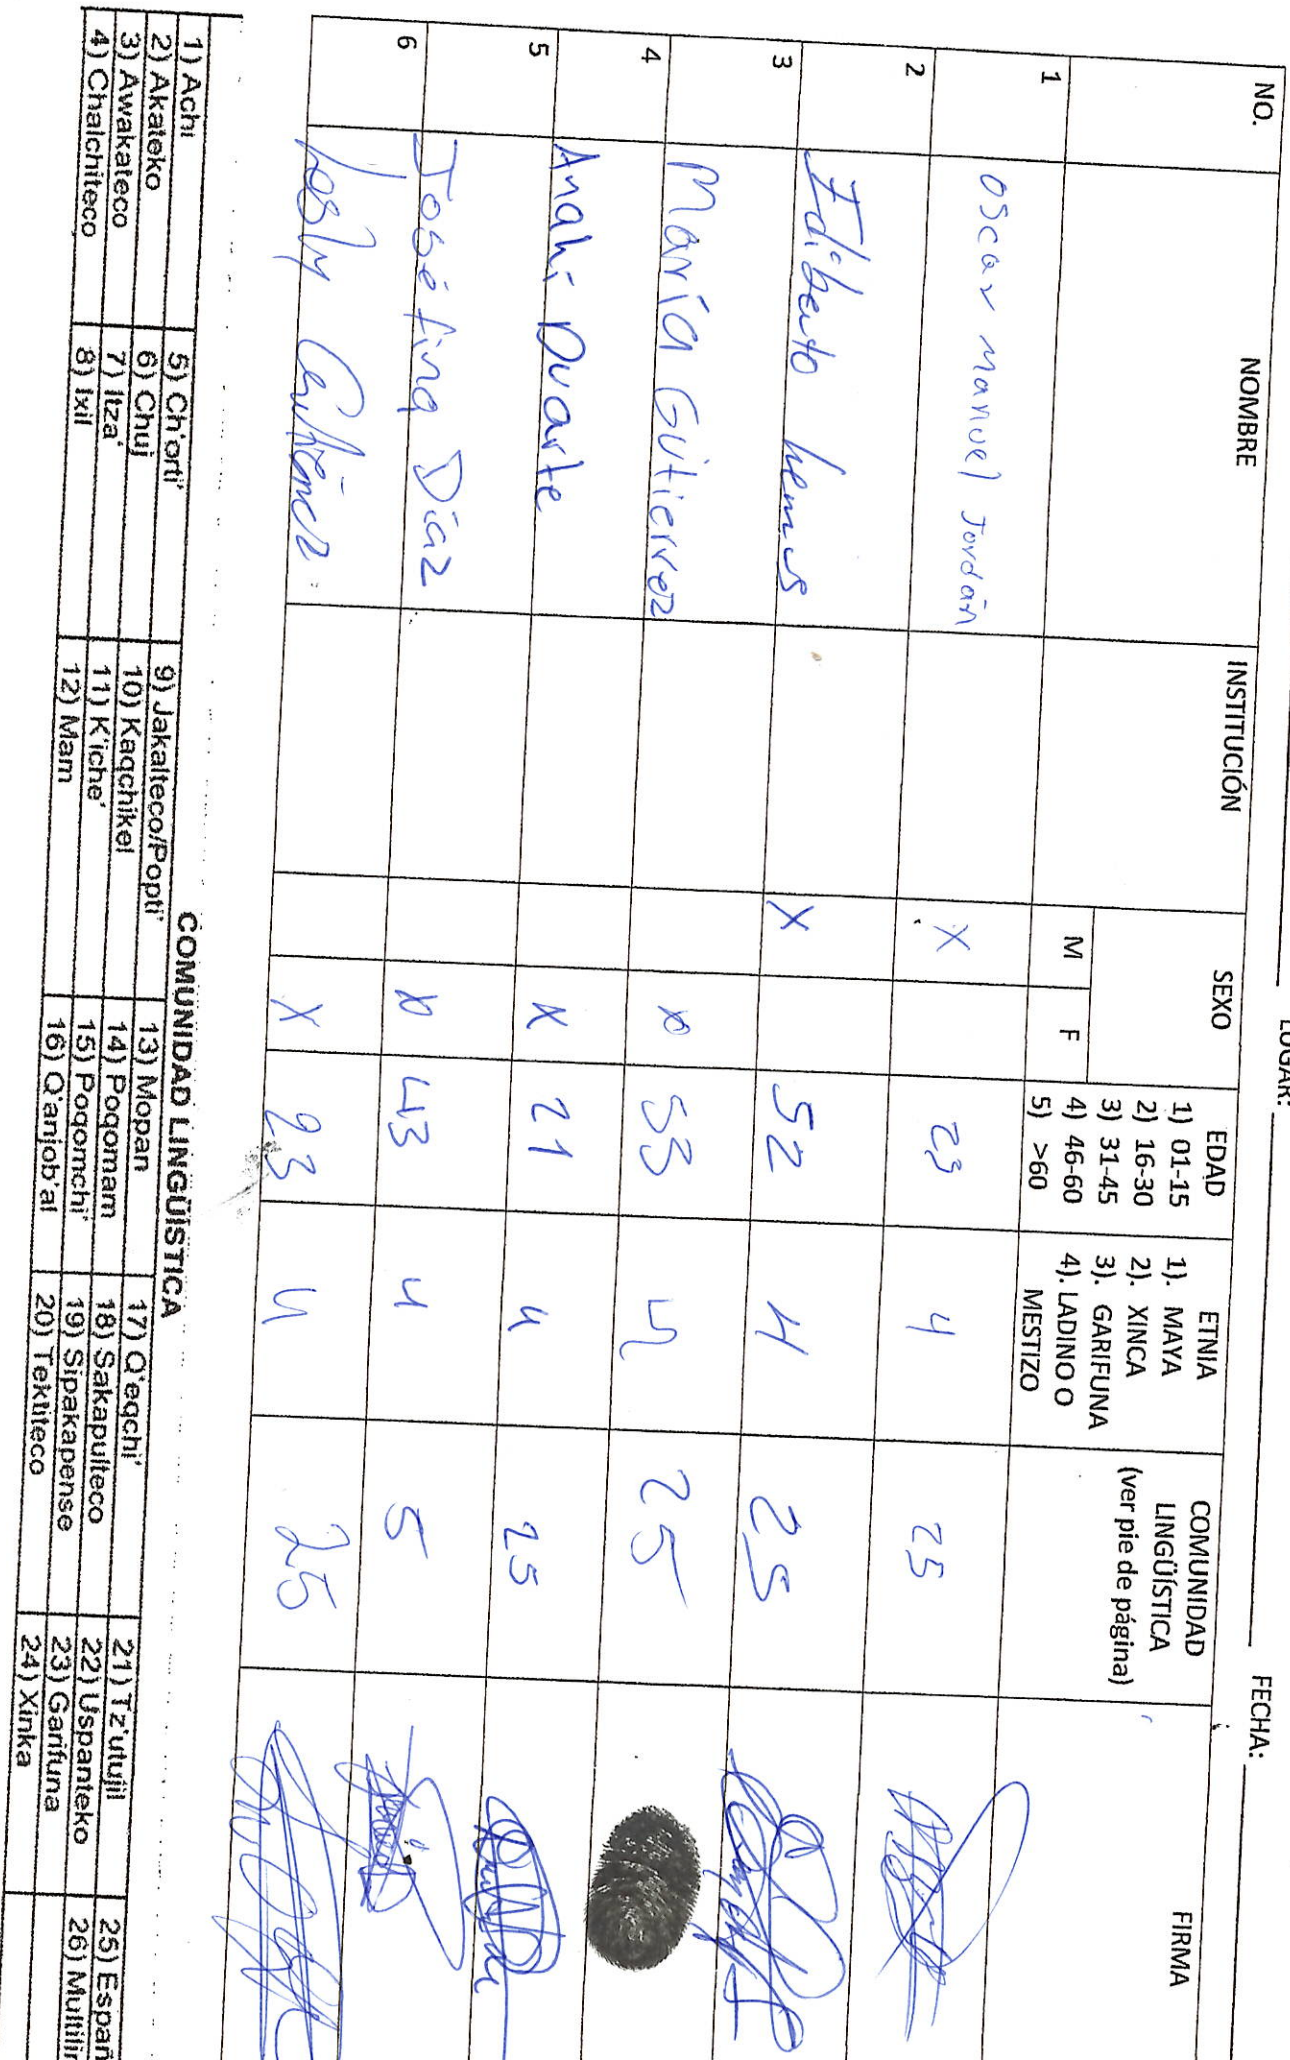 LUGAR: FECHA:
NO. NOMBRE INSTITUCIÓN SEXO EDAD ETNIA COMUNIDAD LINGÜÍSTICA (ver pie de página) FIRMA
M F
1) 01-15
2) 16-30
3) 31-45
4) 46-60
5) >60
1). MAYA
2). XINCA
3). GARIFUNA
4). LADINO O MESTIZO
1 Oscar Manuel Jordán X 23 4 25
2 Edilberto X 52 4 25
3 María Gutierrez X 53 4 25
4 Anahí Duarte X 21 4 25
5 Josefina Díaz X 43 4 5
6 Lesly X 23 4 25
COMUNIDAD LINGÜÍSTICA
1) Achi 5) Ch'orti' 9) Jakalteco/Popti' 13) Mopan 17) Q'eqchi' 21) Tz'utujil 25) Españ
2) Akateko 6) Chuj 10) Kaqchikel 14) Poqomam 18) Sakapulteco 22) Uspanteko 26) Multilin
3) Awakateco 7) Itza' 11) K'iche' 15) Poqomchi' 19) Sipakapense 23) Garifuna
4) Chalchiteco 8) Ixil 12) Mam 16) Q'anjob'al 20) Tektiteco 24) Xinka